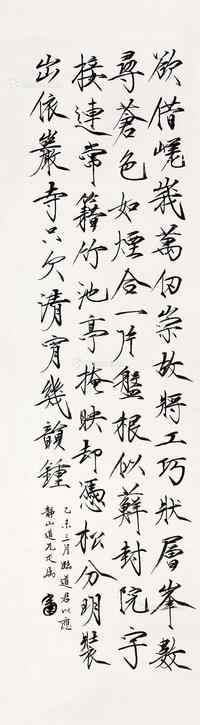 欲借嵯峩萬仞崇故將工巧狀層峯數
尋蒼色如煙合一片盤根似蘚封院宇
接連常籍竹池亭掩映却憑松分明裝
出依巖寺只欠清宵幾韻鍾
乙未三月臨道君以應
靜山道兄疋屬